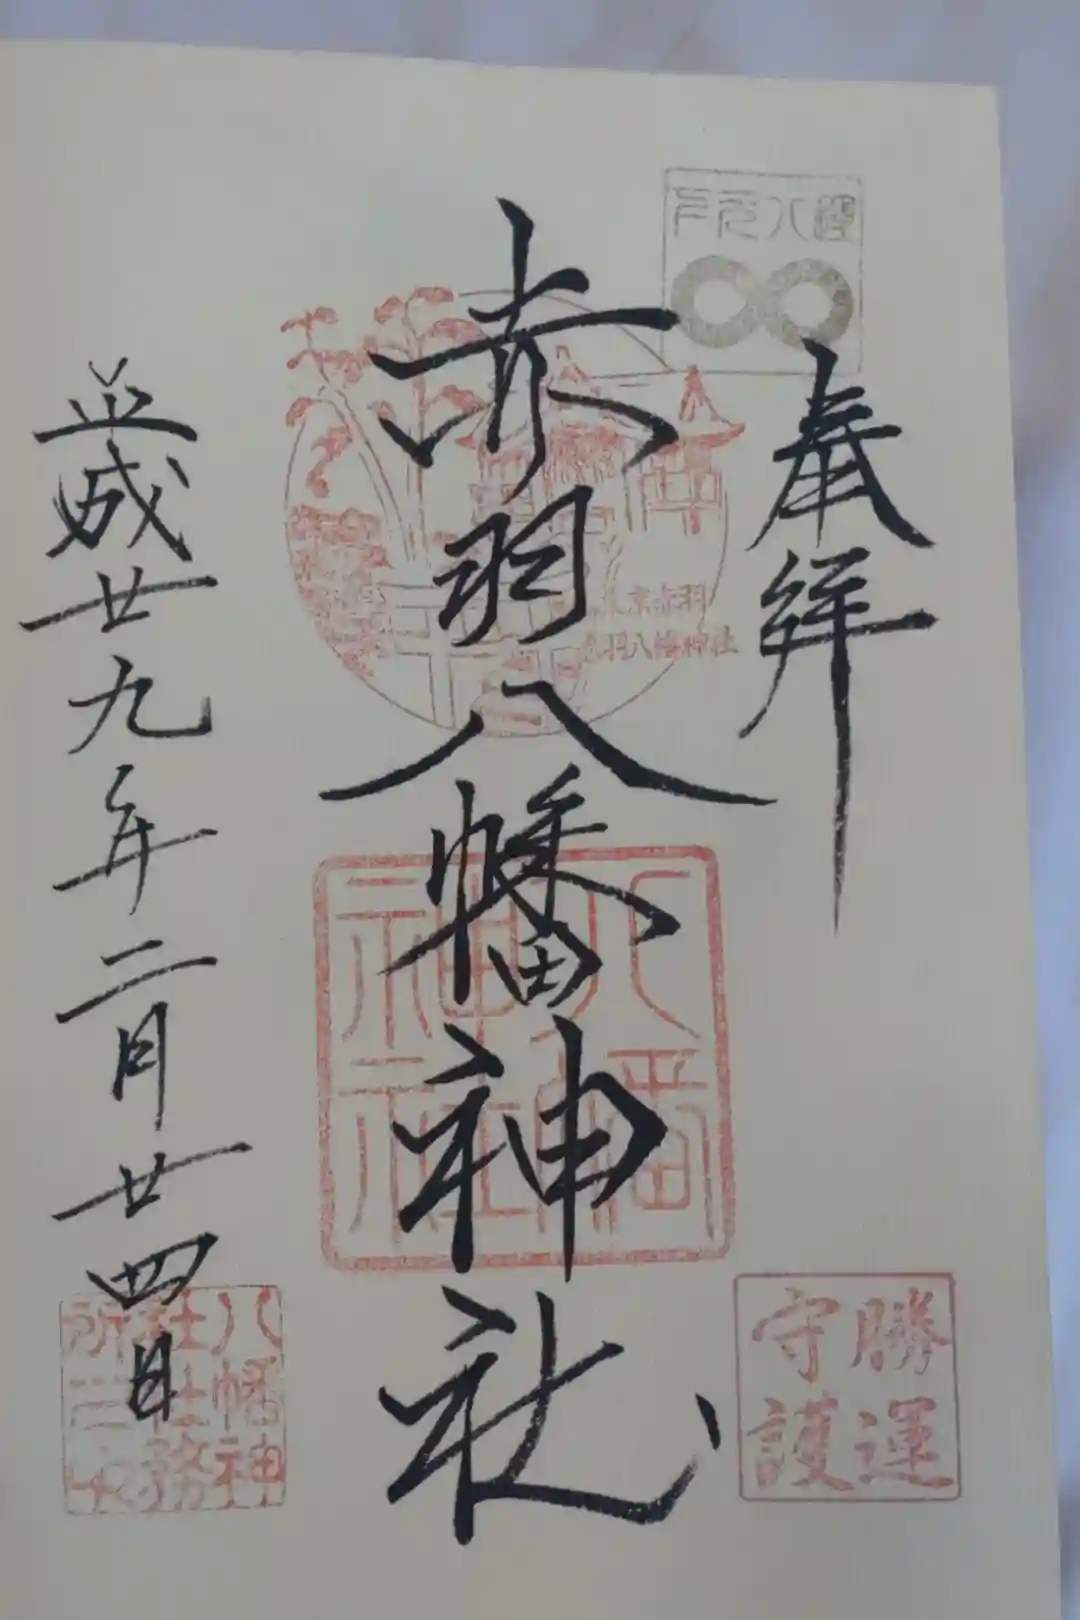 奉拝
赤羽八幡神社
平成廿九年二月廿四日
東京赤羽
赤羽八幡神社
八幡
神社
勝運
守護
八幡神
社社務
所之印